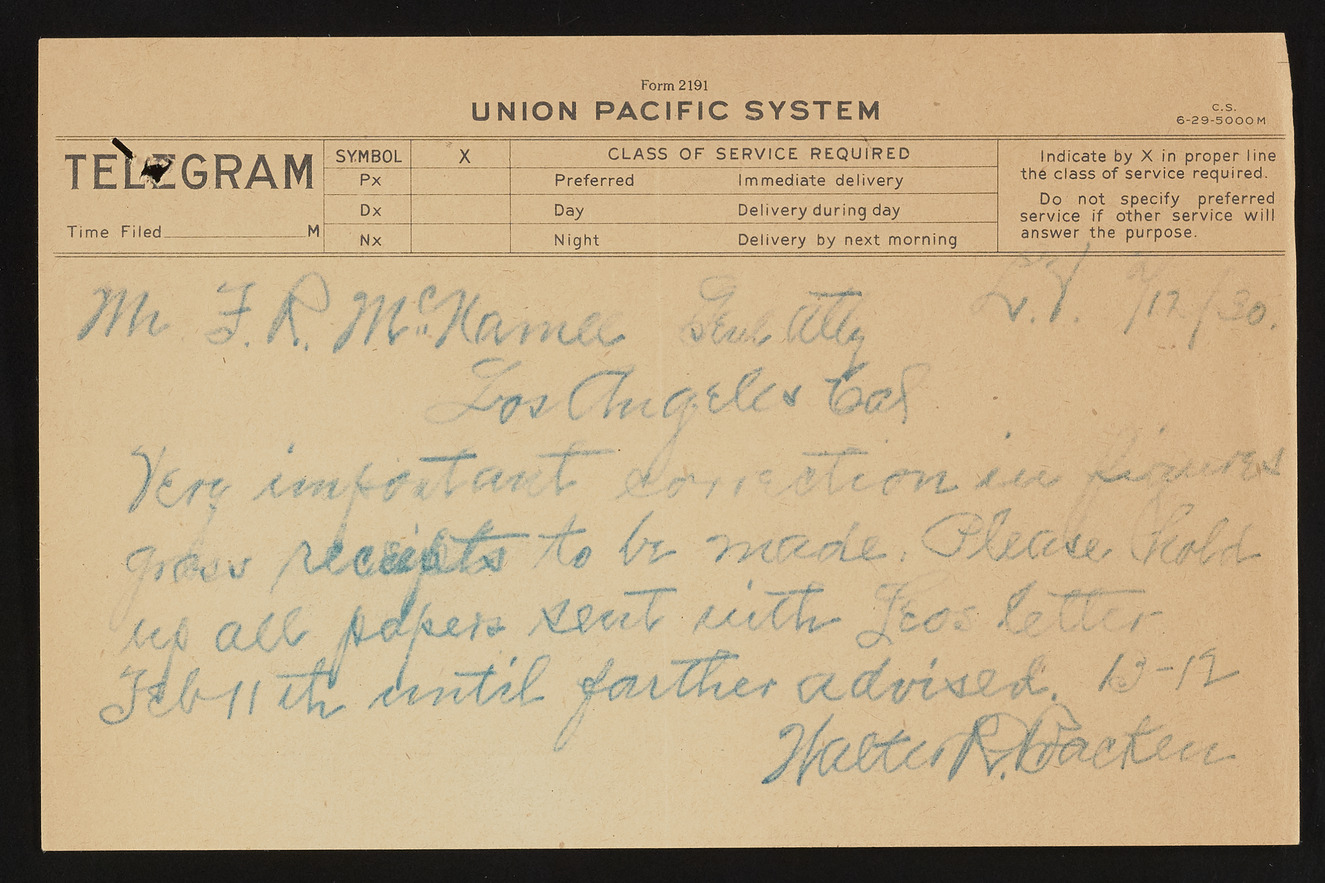 Form 2191
UNION PACIFIC SYSTEM
C.S.
6-29-5000M
TELEGRAM
Time Filed M
SYMBOL X CLASS OF SERVICE REQUIRED
Px Preferred Immediate delivery
Dx Day Delivery during day
Nx Night Delivery by next morning
Indicate by X in proper line
the class of service required.
Do not specify preferred
service if other service will
answer the purpose.
L.V. 2/12/30.
Mr F. R. McNamee Genl Atty
Los Angeles Cal
Very important correction in figures
gross receipts to be made. Please hold
up all papers sent with Leos letter
Feb 11th until farther advised. B-19
Walter R. Bracken